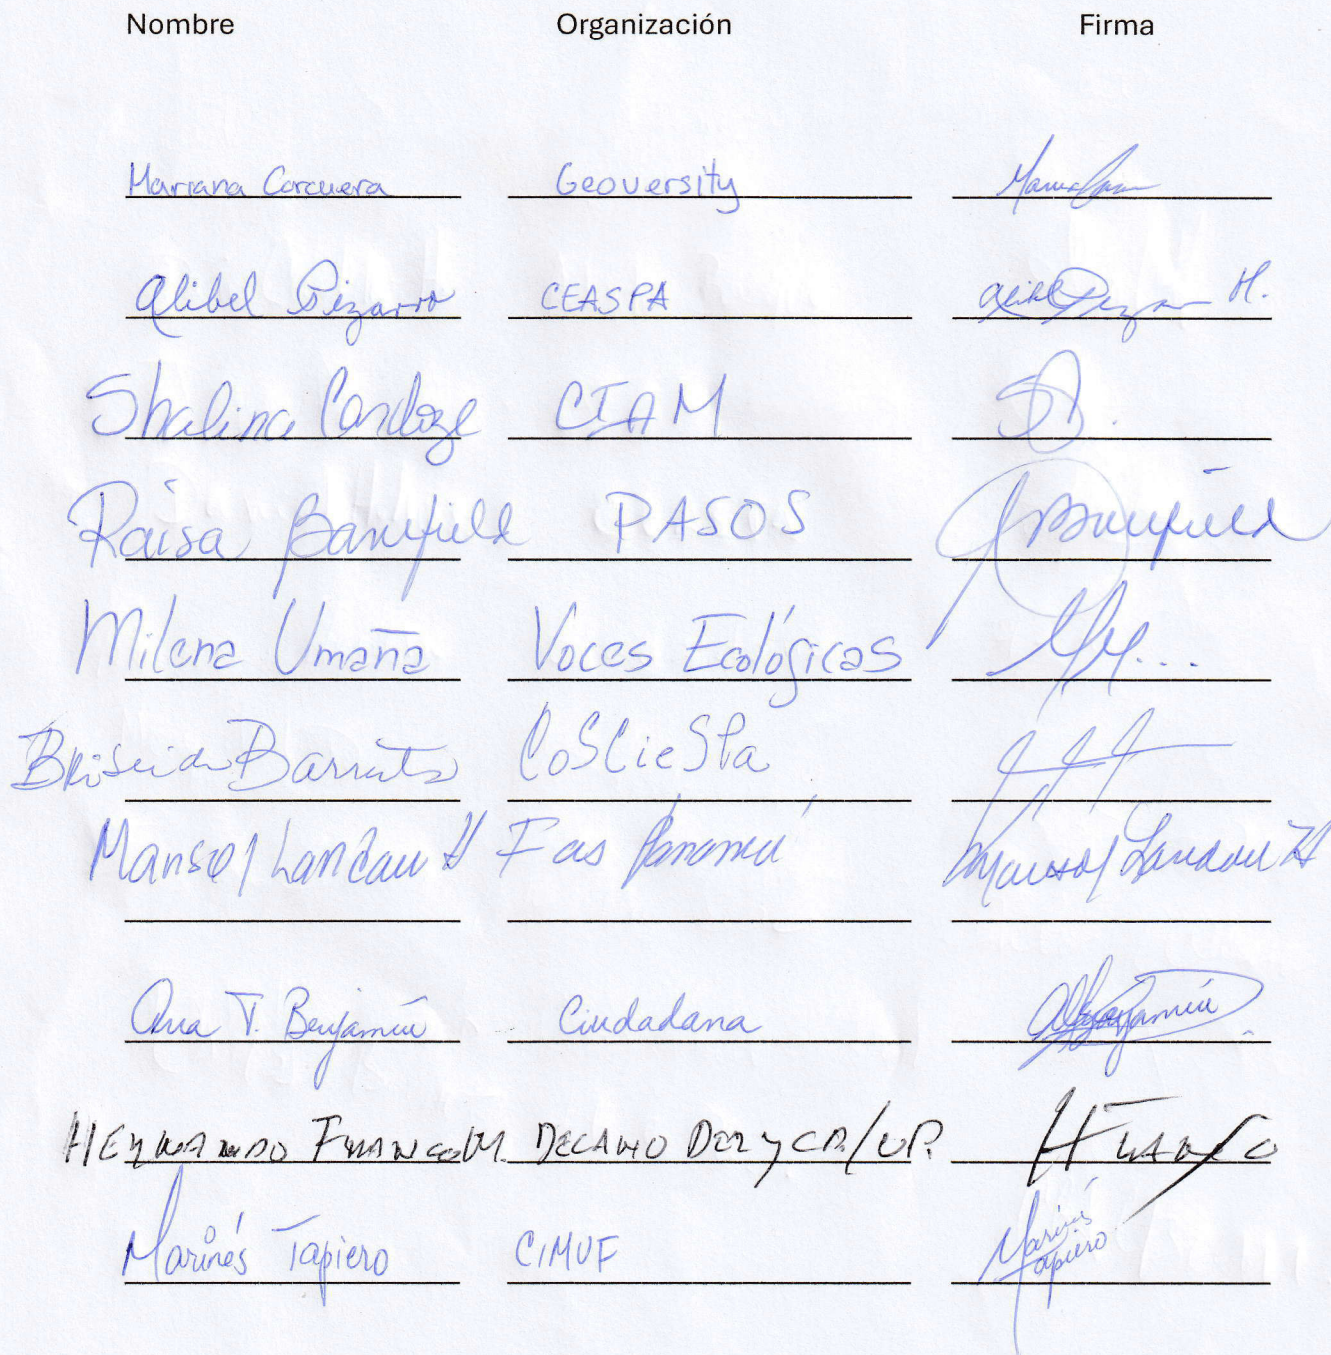 Nombre Organización Firma
Mariana Corcuera Geoversity
Alibel Pizarro CEASPA Alibel Pizarro H.
Shalina Cardoze CIAM
Raisa Banfield PASOS Banfield
Milena Umaña Voces Ecológicas
Briseida Barrantes CoSCieSPa
Marisol Landau H Fas Panamá Marisol Landau H
Ana T. Benjamín Ciudadana Benjamín
HERNANDO FRANCO M. DECANO DER y CP/UP. H FRANCO
Marinés Tapiero CIMUF Marinés Tapiero